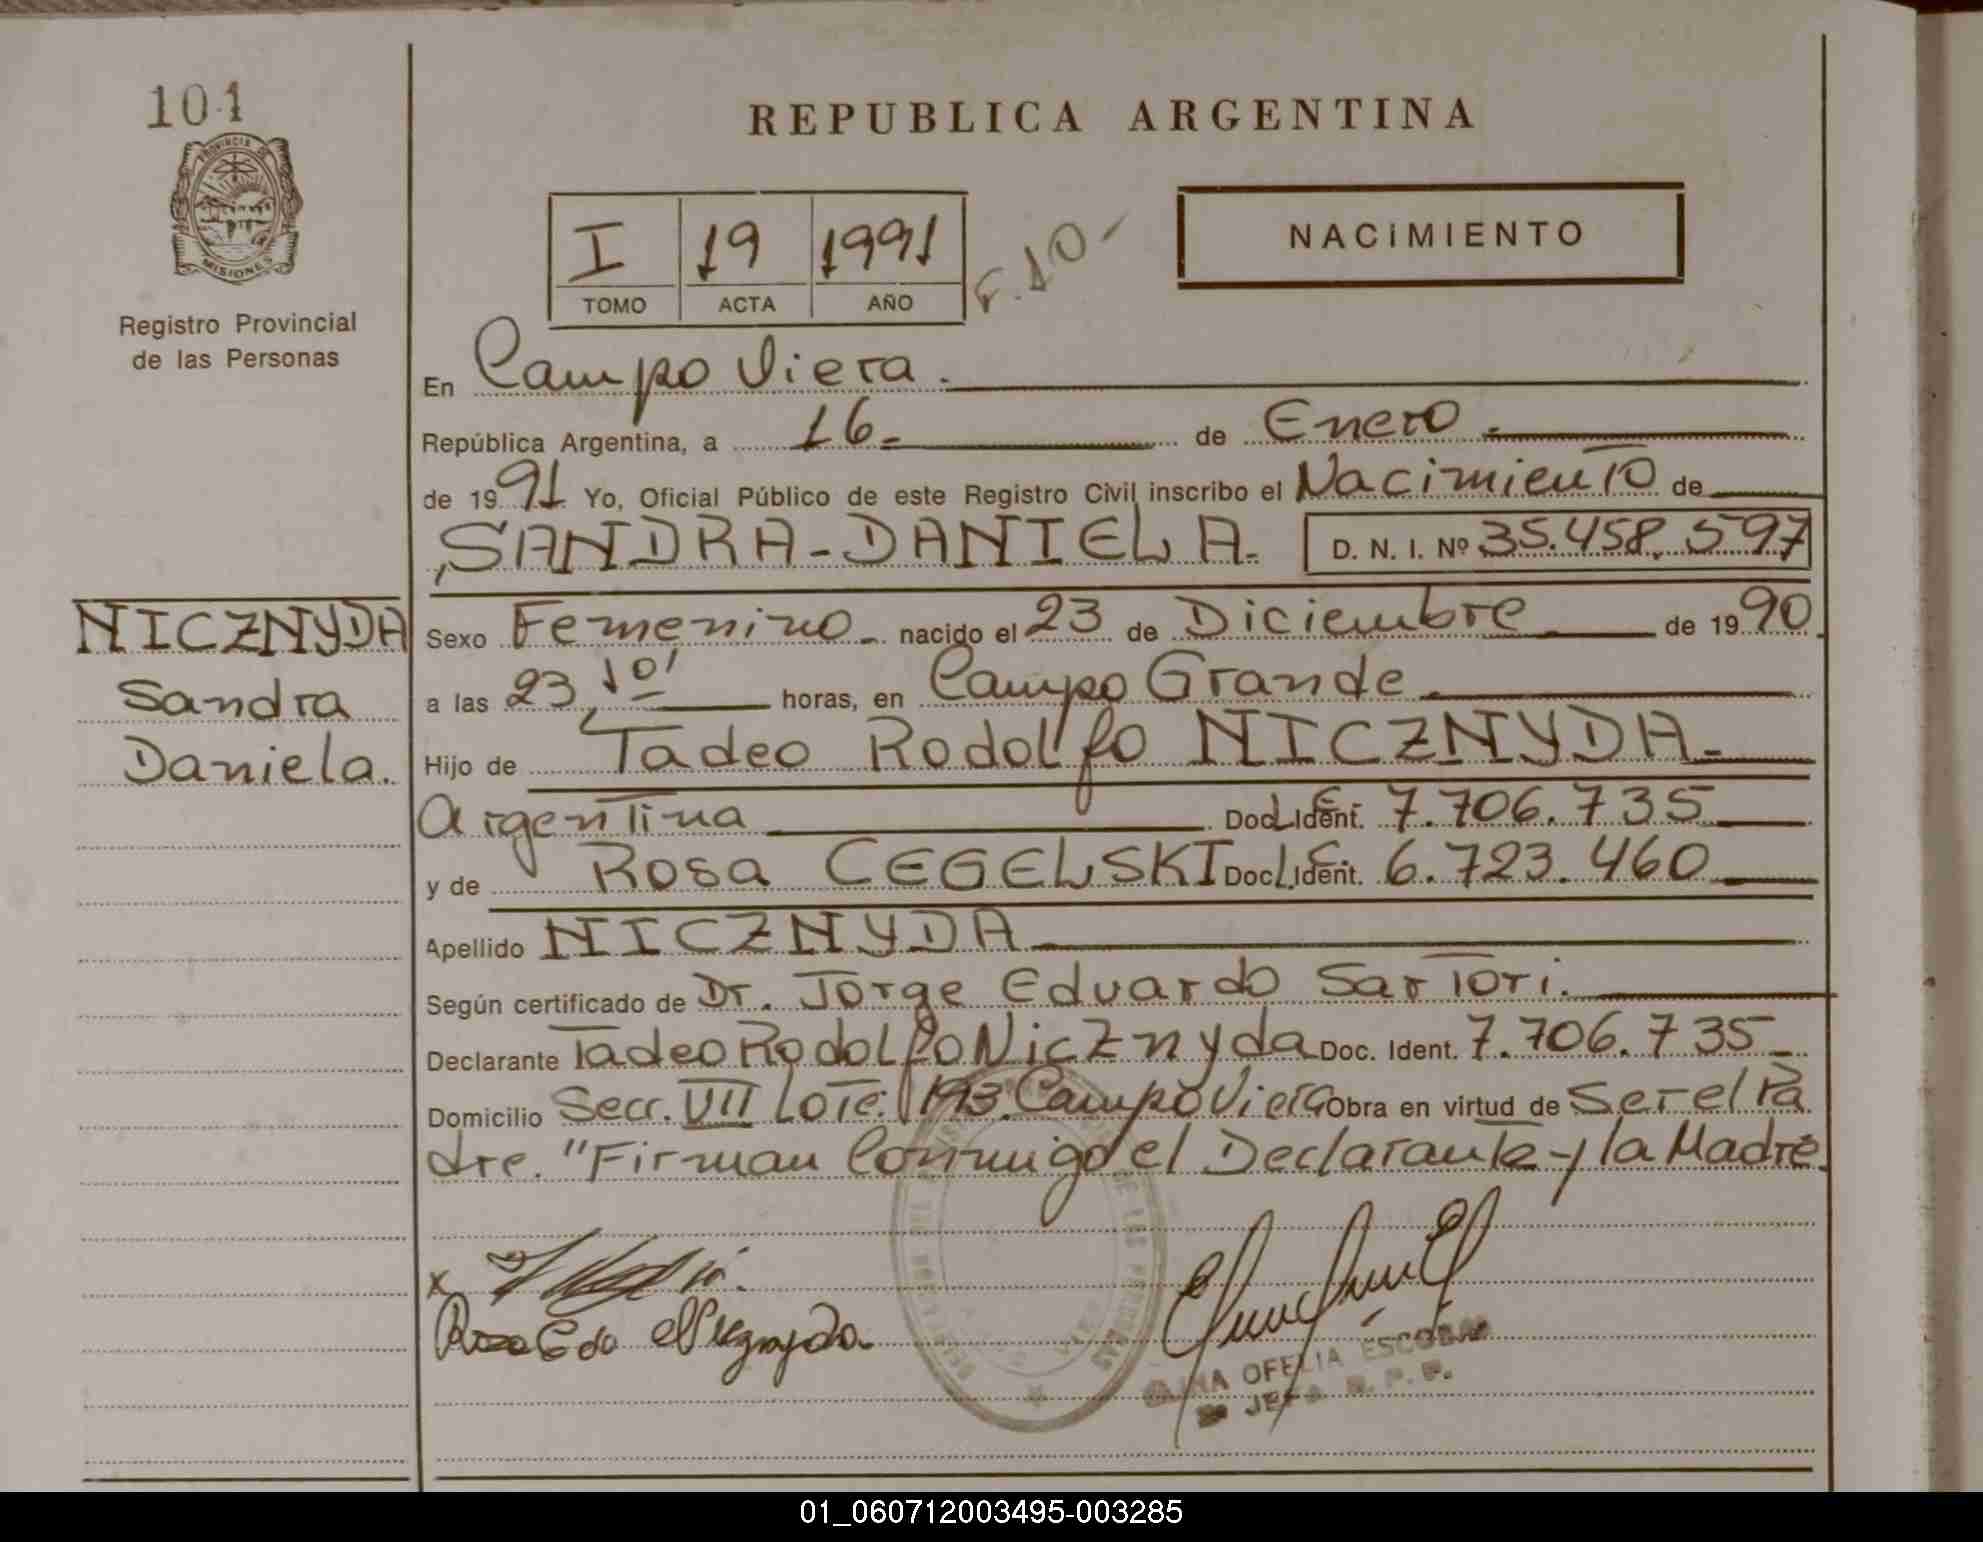 101
PROVINCIA DE
MISIONES
Registro Provincial
de las Personas
REPUBLICA ARGENTINA
I 19 1991
TOMO ACTA AÑO
F. 10-
NACIMIENTO
En Campo Viera.
República Argentina, a 16- de Enero.
de 1991 Yo, Oficial Público de este Registro Civil inscribo el Nacimiento de
SANDRA-DANIELA. D. N. I. Nº 35.458.597
NICZNYDA
Sandra
Daniela.
Sexo Femenino- nacido el 23 de Diciembre de 1990
a las 23,10' horas, en Campo Grande.
Hijo de Tadeo Rodolfo NICZNYDA-
Argentina Doc. Ident. L.E. 7.706.735
y de Rosa CEGELSKI Doc. Ident. L.C. 6.723.460
Apellido NICZNYDA
Según certificado de Dr. Jorge Eduardo Sartori.
Declarante Tadeo Rodolfo Nicznyda Doc. Ident. 7.706.735-
Domicilio Secc. VII Lote. 193. Campo Viera Obra en virtud de Ser el Pa
dre. "Firman Conmigo el Declarante y la Madre.
x
Rosa C de Nicznyda
OFELIA ESCOBAR
JEFA R. P. P.
01_060712003495-003285